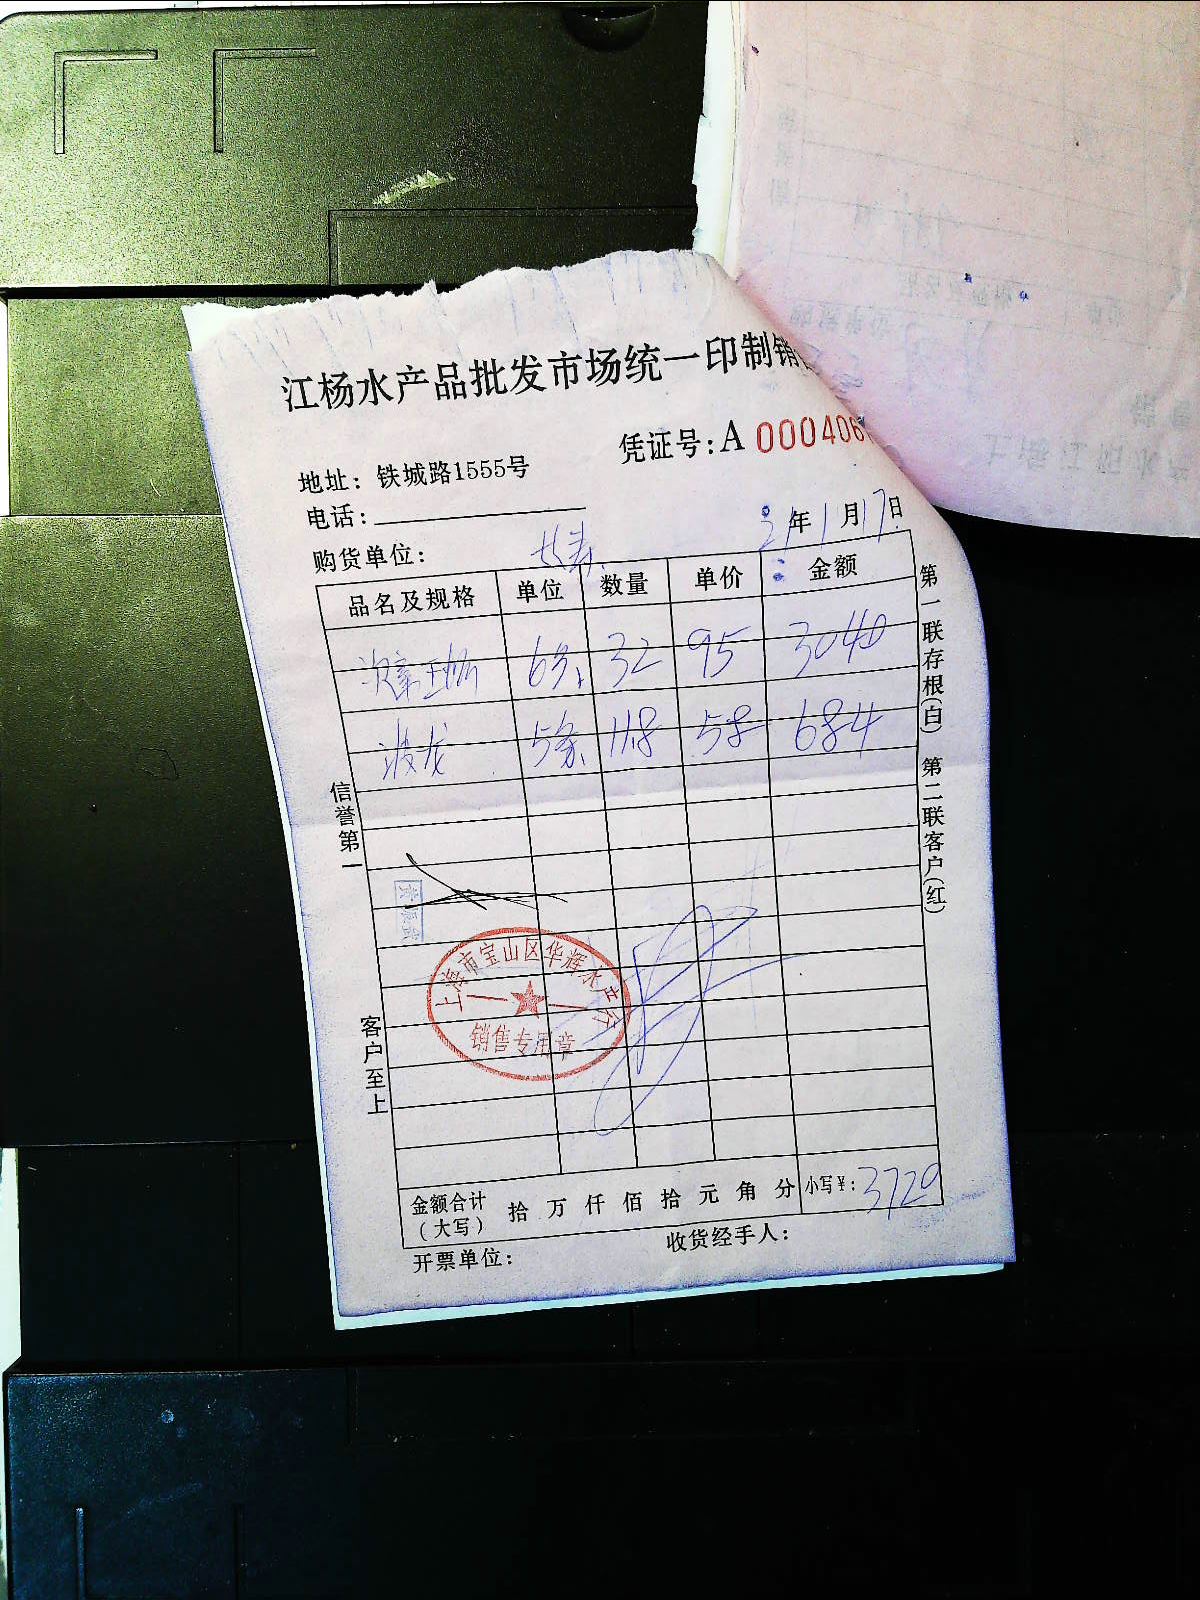 江杨水产品批发市场统一印制销
凭证号:A 000406
地址: 铁城路1555号
电话:
购货单位:
21年1月17日
品名及规格 单位 数量 单价 金额
6条 32 95 3040
波龙 5条 11.8 58 684
信誉第一
客户至上
第一联存根(白) 第二联客户(红)
上海市宝山区华辉水产行
销售专用章
金额合计(大写) 拾 万 仟 佰 拾 元 角 分 小写¥: 3720
开票单位: 收货经手人: